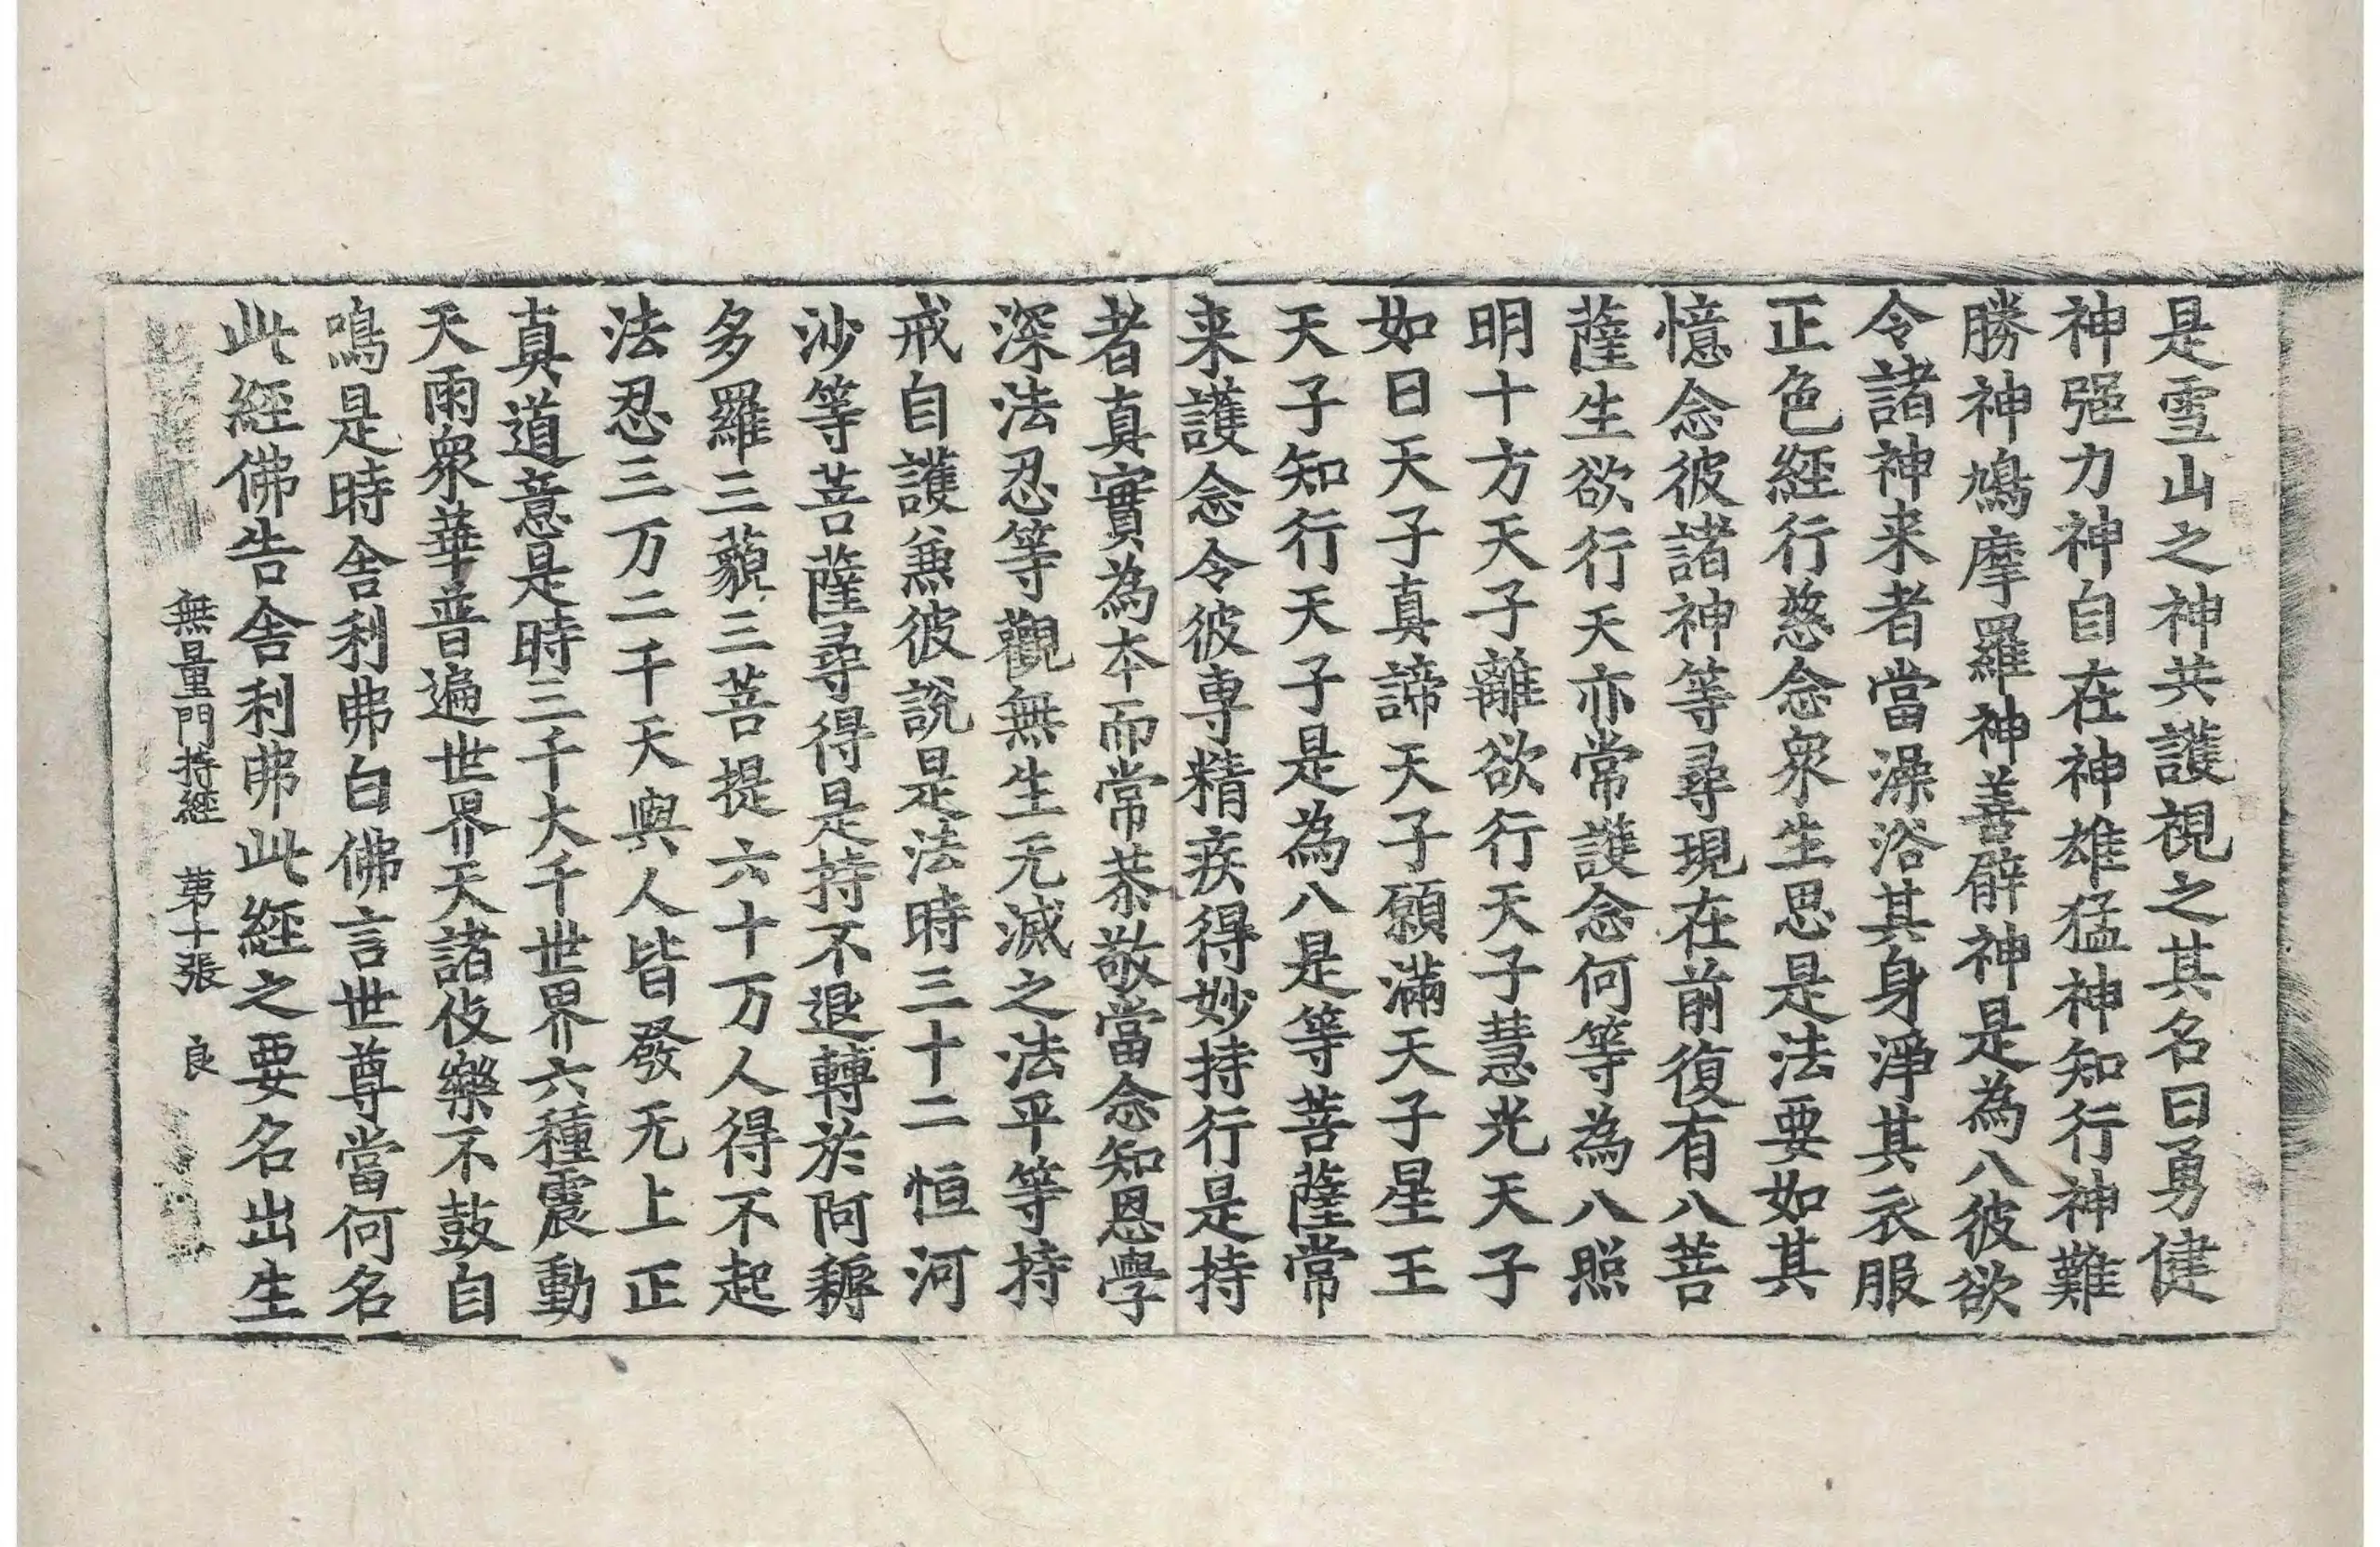 是雪山之神共護視之其名曰勇健
神强力神自在神雄猛神知行神難
勝神鳩摩羅神善臂神是為八彼欲
令諸神来者當澡浴其身淨其衣服
正色經行慈念衆生思是法要如其
憶念彼諸神等尋現在前復有八菩
薩生欲行天亦常護念何等為八照
明十方天子離欲行天子慧光天子
如日天子真諦天子願滿天子星王
天子知行天子是為八是等菩薩常
来護念令彼専精疾得妙持行是持
者真實為本而常恭敬當念知恩學
深法忍等觀無生无滅之法平等持
戒自護兼彼説是法時三十二恒河
沙等菩薩尋得是持不退轉於阿耨
多羅三藐三菩提六十万人得不起
法忍三万二千天與人皆發无上正
真道意是時三千大千世界六種震動
天雨衆華普遍世界天諸伎樂不鼓自
鳴是時舎利弗白佛言世尊當何名
此經佛告舎利弗此經之要名出生
無量門持經 第十張 良